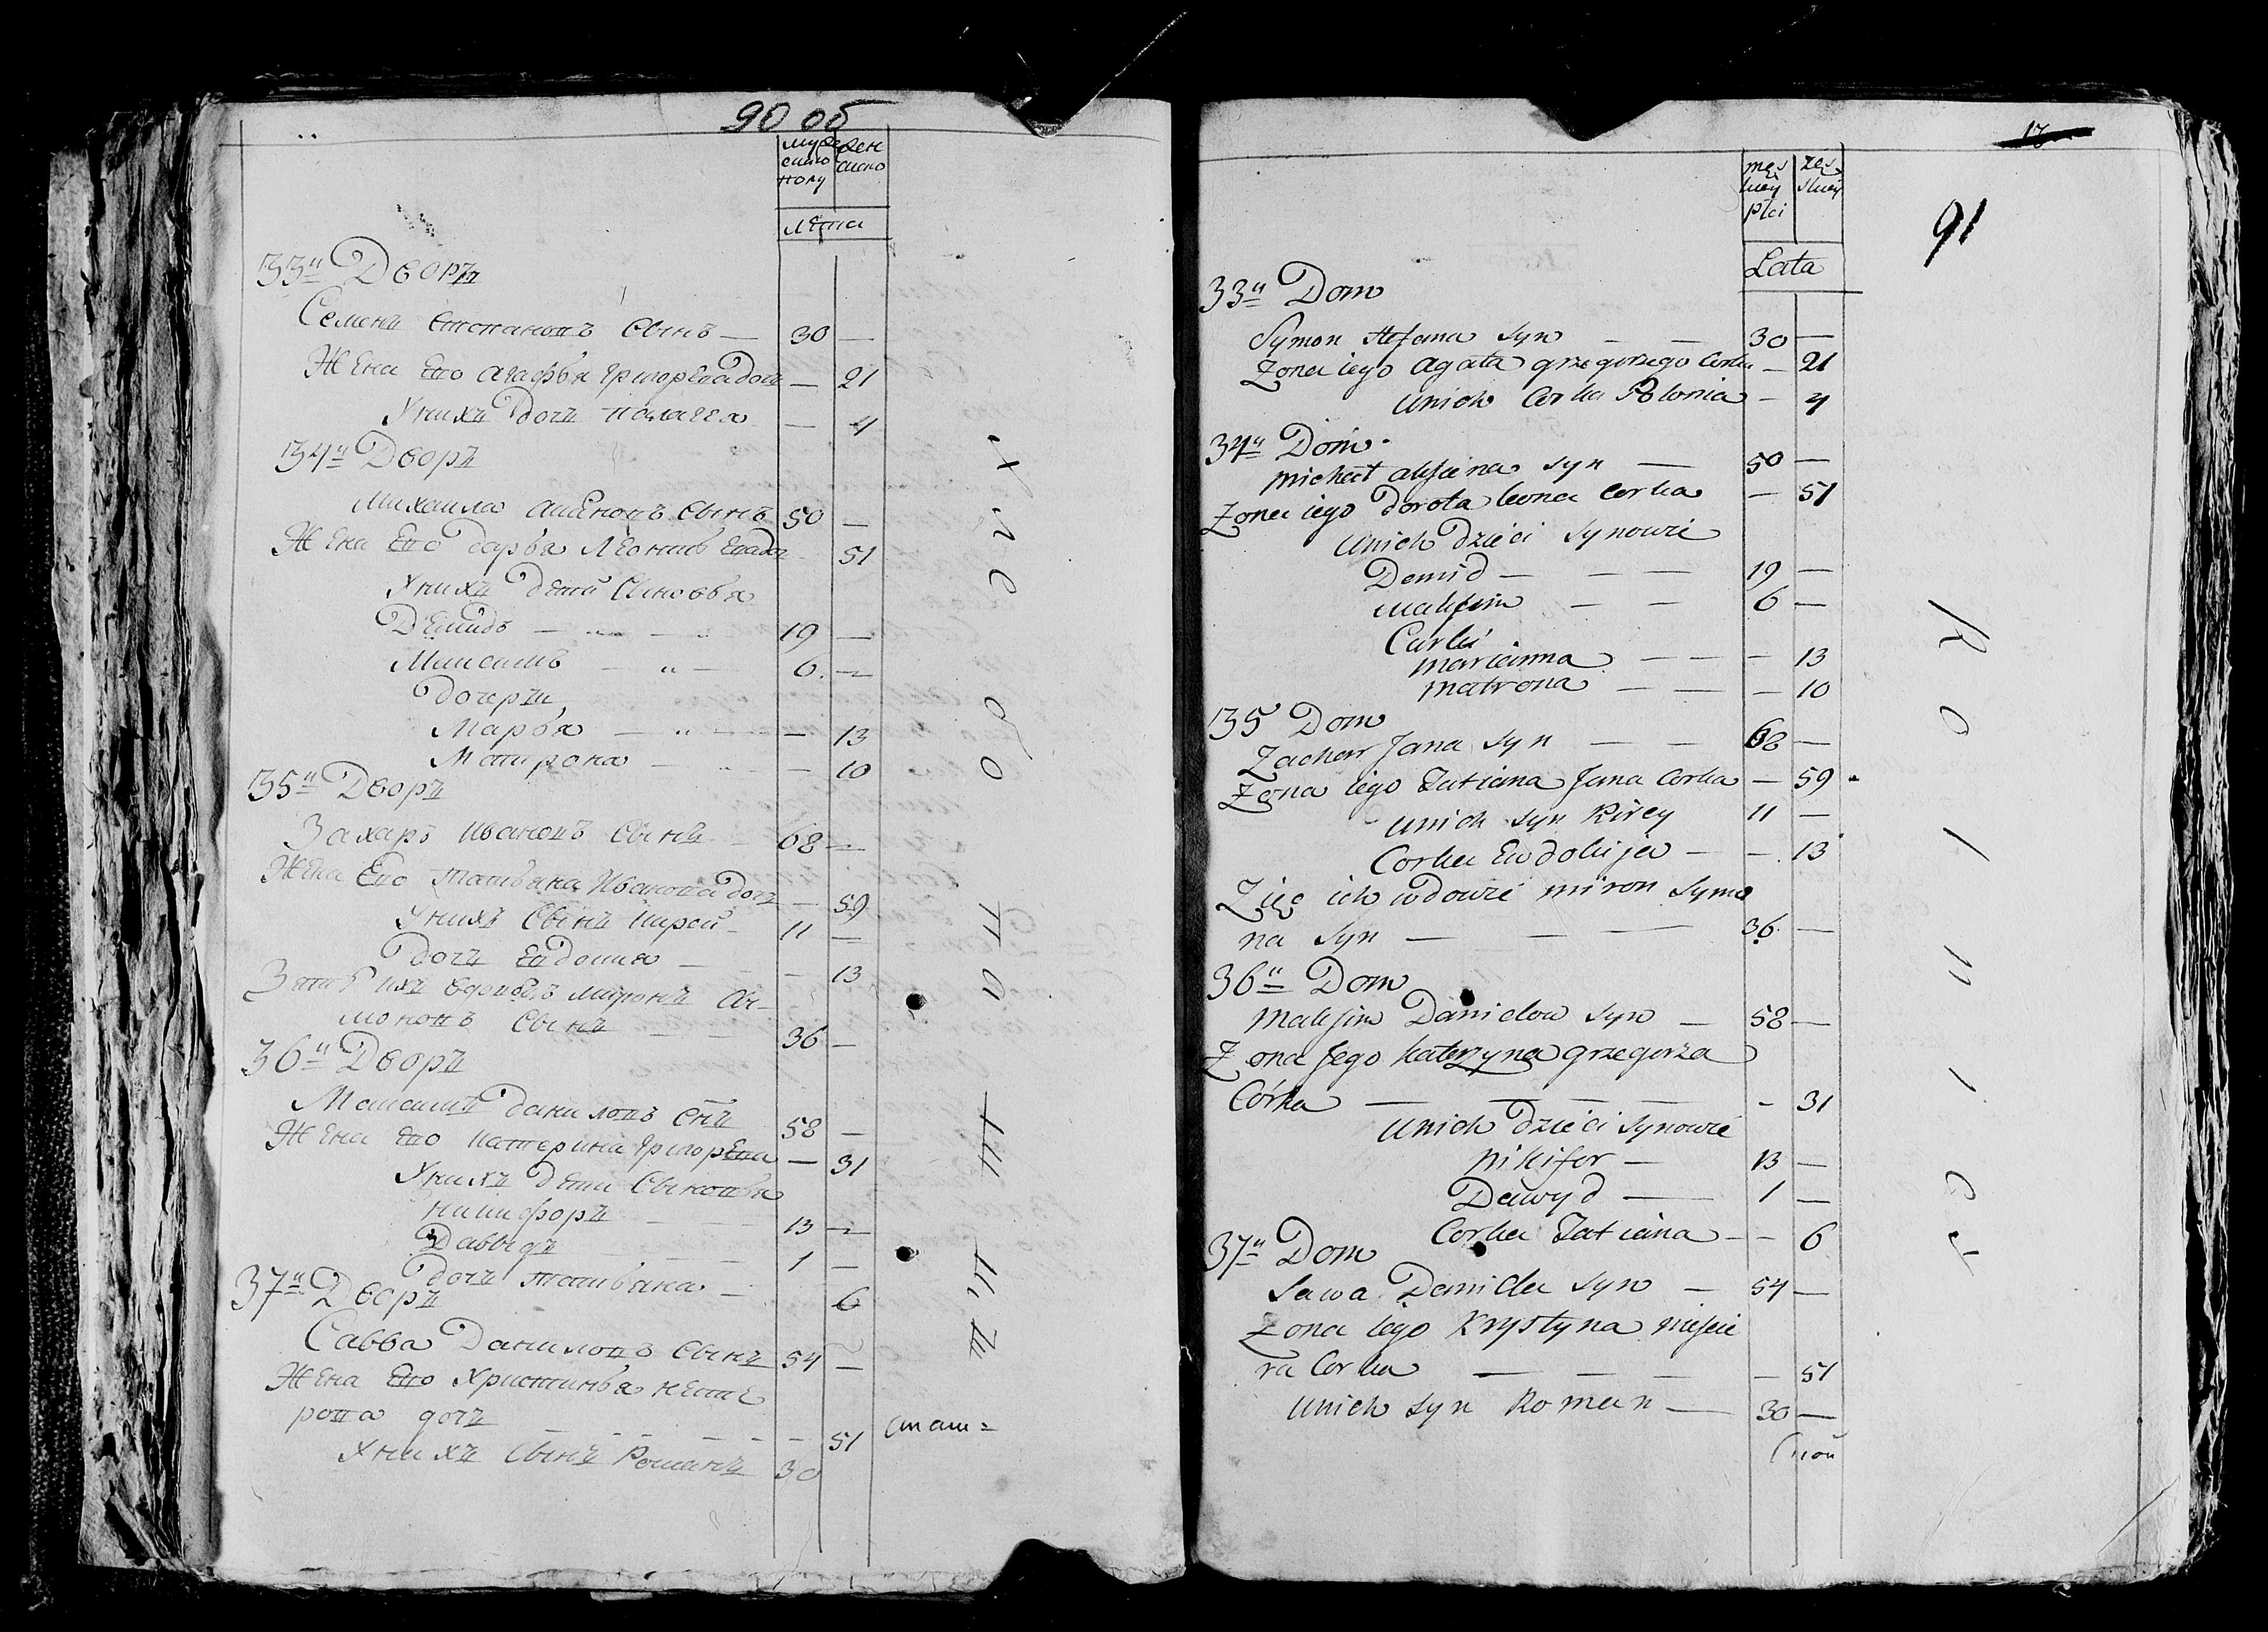 90 об
муже
ского
полу
жен
ского
лета
33й Дворъ
Семенъ Степановъ Сынъ — 30 —
Жена Его Агафья Григорева доч — 21
У нихъ Дочъ Палагея — 4
34й Дворъ
Михаила Сынъ 50 —
Жена Его Дарья Леонова дoч — 51
У нихъ Дети Сыновья
Демидъ — 19 —
Максимъ — 6 —
Дочери
Марья — 13
Матрона — 10
35й Дворъ
Захаръ Ивановъ Сынъ 68 —
Жена Его Татьяна Иванова дочъ — 59
У нихъ Сынъ Кирей 11 —
Дочъ Евдокия — 13
Зять ихъ вдовецъ Миронъ Си-
моновъ Сынъ — 36 —
36й Дворъ
Максимъ Даниловъ Снъ 58 —
Жена Его Катерина Григорева — 31
У нихъ Дети Сыновья
Никифоръ 13 —
Давыдъ 1 —
Дочъ Татьяна — 6
37й Дворъ
Савва Даниловъ Сынъ 54 —
Жена Его Христинья Несте
рова дочъ — 51
У нихъ Сынъ Романъ 30
стат=
17
91
męs
kiey
płci
żeń
skiey
Lata
33й Dom
Symon Stefana Syn — — 30 —
Zona iego Agata grzegorzego Corka — 21
Unich Corka Polonia — 4
34й Dom
Michał syn — 50 —
Zona iego Dorota leona Corka — 51
Unich dzieci Synowie
Demid — — — 19 —
Maksim — — 6 —
Curki
Marianna — — — 13
Matrona — — — 10
35 Dom
Zachar Jana syn — — 68 —
Zona iego Tatiana Jana Corka — 59
Unich syn Kirey 11 —
Corka Eudokija — — 13
Zięc ich wdowie miron Symo
na syn — — — 36 —
36й Dom
Maksim Danielow syn — 58 —
Zona Jego Katerzyna grzegorza
Córka — — — — 31
Unich dzieci Synowie
Nikifor — 13 —
Dawyd — 1 —
Corka Tatiana — — 6
37й Dom
Sawa Daniela syn — 54 —
Zona iego Krystyna niescie
ra Corka — — — — 51
Unich syn Roman — 30 —